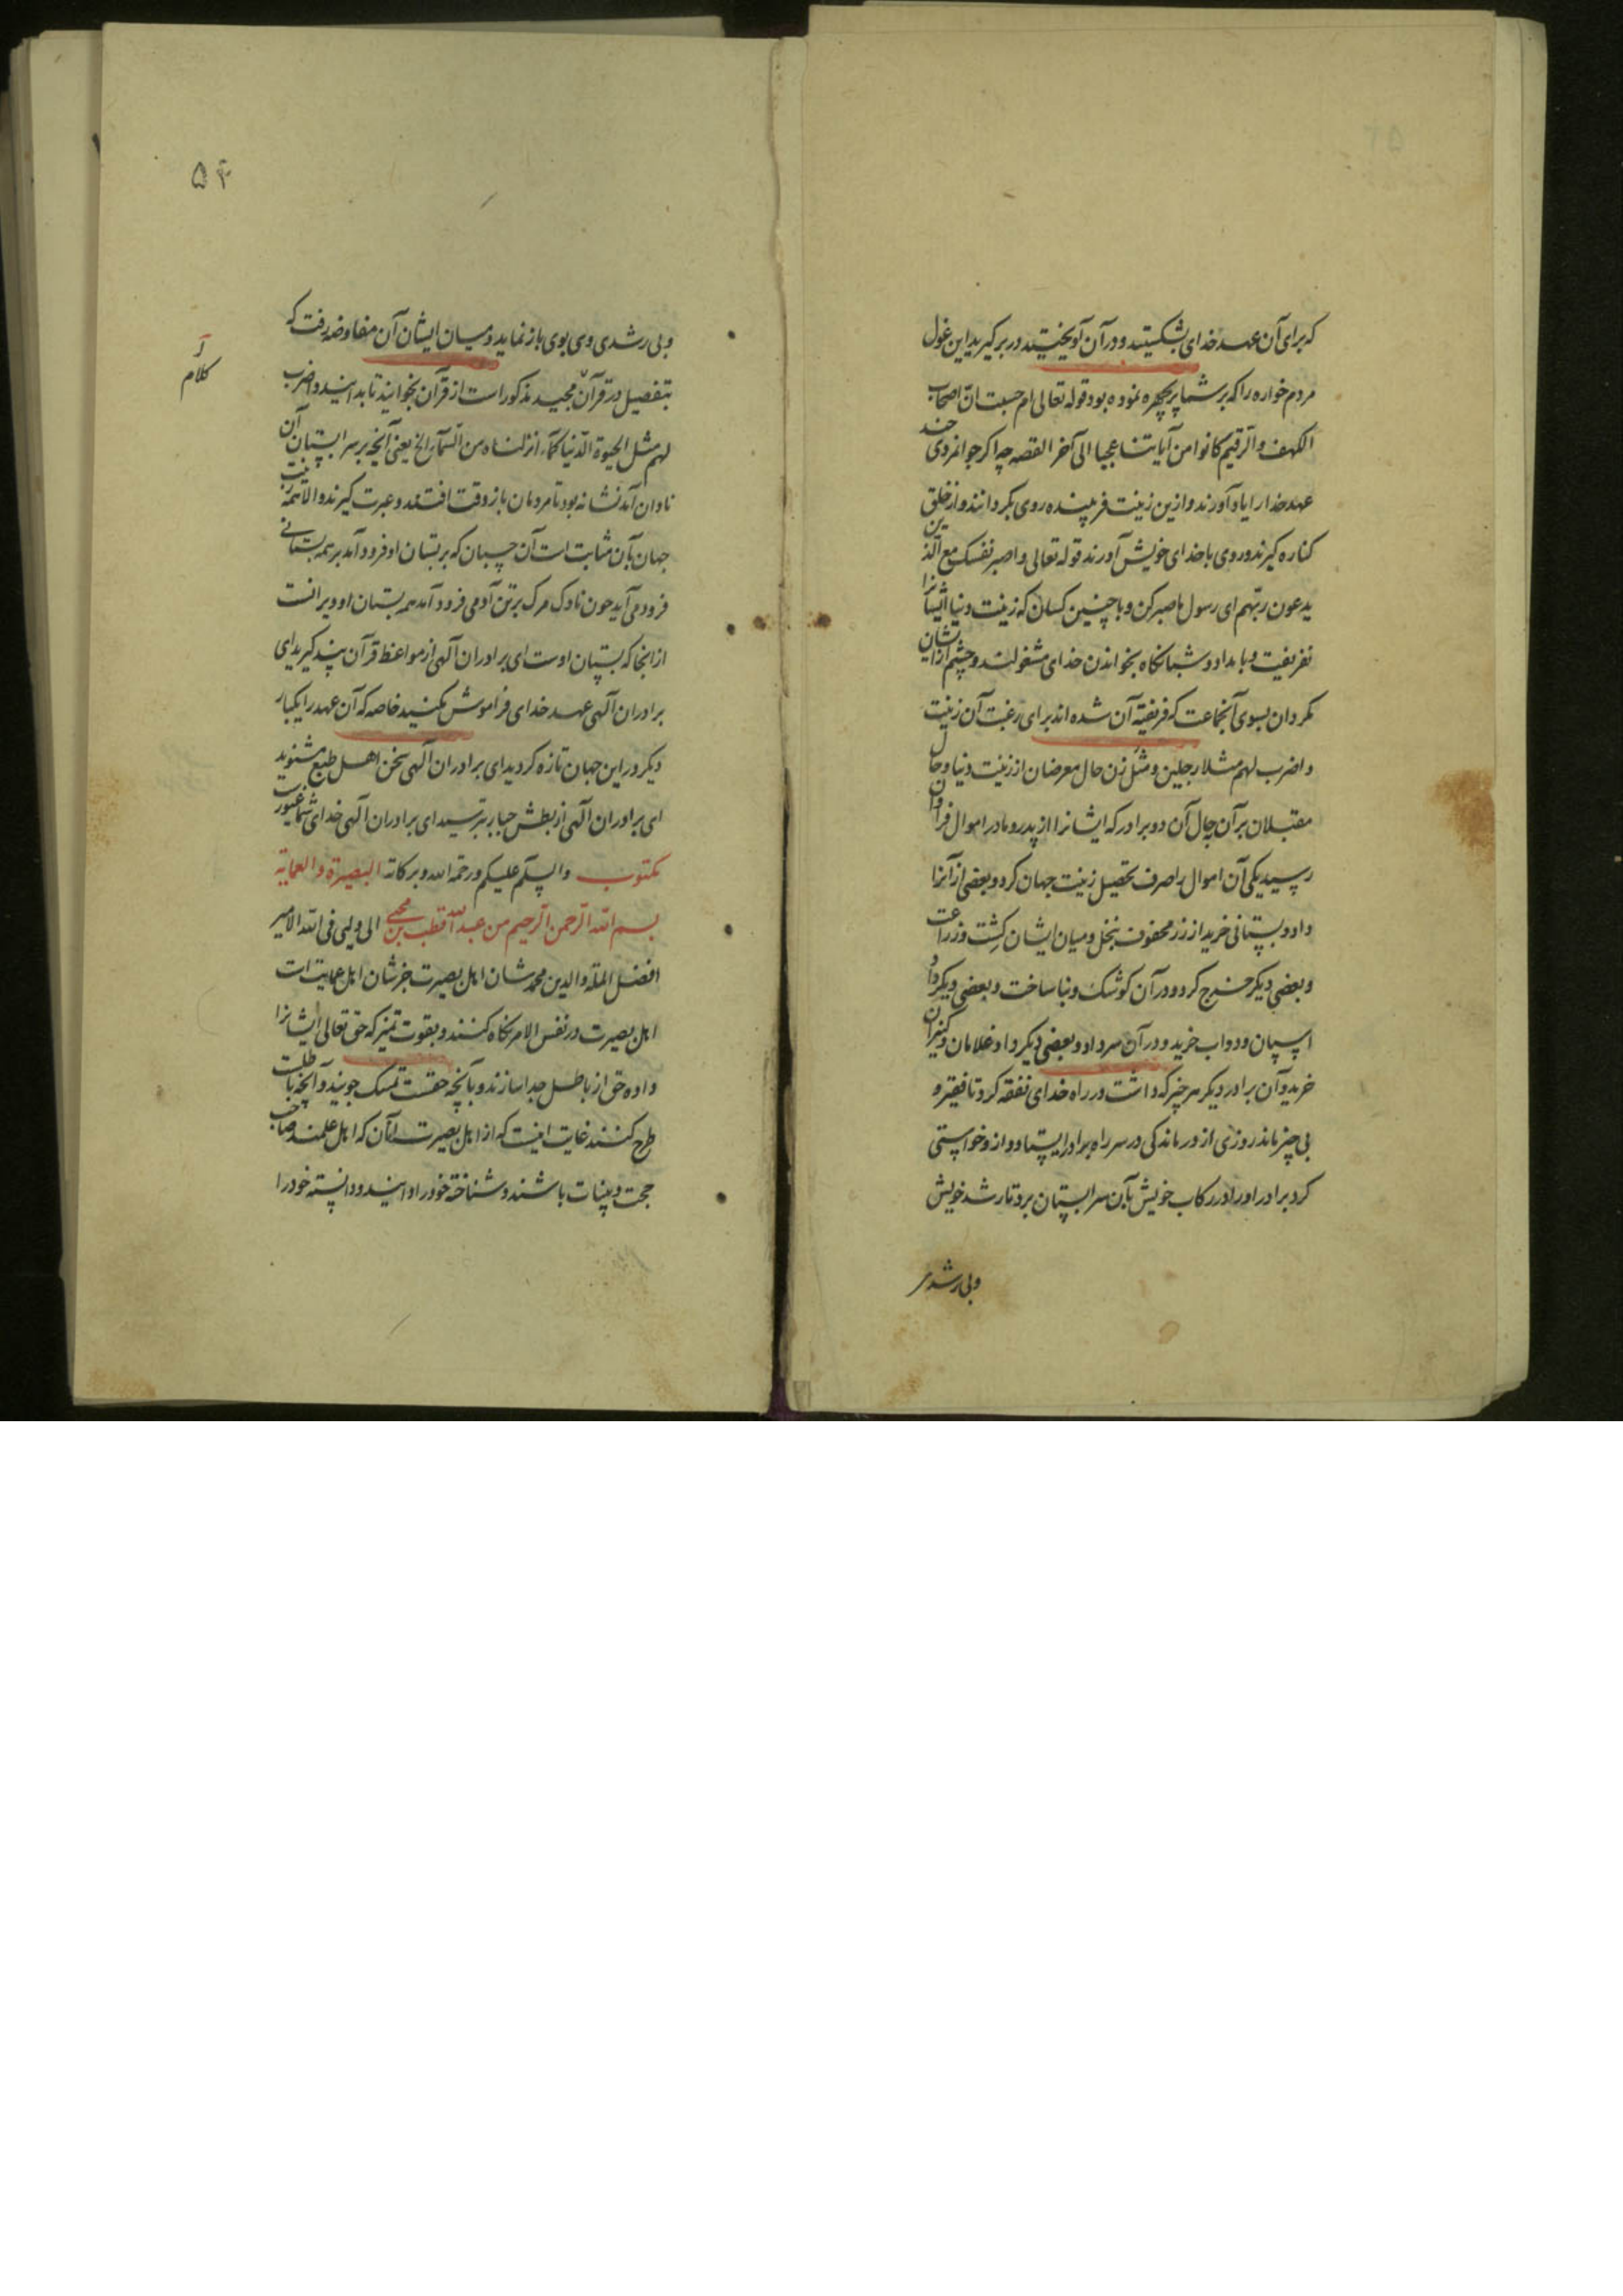 که برای آن عهد خدای بشکستید و در آن آویختید در بر گیرید این غول
مردم خواره را که بر شما پریچهره نموده بود قوله تعالی ام حسبت انّ اصحاب
الکهف و الرّقیم کانوا من آیاتنا عجبا الی آخر القصه چرا که جوانمردی چند
عهد خدا را یاد آورند و از این زینت فریبنده روی بگردانند و از خلق
کناره گیرند و روی با خدای خویش آورند قوله تعالی و اصبر نفسک مع الّذین
یدعون ربّهم ای رسول ما صبر کن و با چنین کسان که زینت دنیا ایشانرا
نفریفت و بامداد و شبانگاه بخواندن خدای مشغولند و چشم از ایشان
مگردان بسوی آنجماعت که فریفتهٔ آن شده‌اند برای رغبت آن زینت
و اضرب لهم مثلا رجلین و مثل زن حال معرضان از زینت دنیا و حال
مقبلان بر آن بحال آن دو برادر که ایشانرا از پدر و مادر اموال فراوان
رسید یکی آن اموال را صرف تحصیل زینت جهان کرد و بعضی از آنرا
داد و بستانی خرید از رز محفوف بنخل و میان ایشان کشت و زراعت
و بعضی دیگر خرج کرد و در آن کوشک و بنا ساخت و بعضی دیگر داد
اسپان و دواب خرید و در آن سر داد و بعضی دیگر داد غلامان و کنیزان
خرید و آن برادر دیگر هر چیز که داشت در راه خدای نفقه کرد تا فقیر و
بی چیز ماند روزی از درماندگی در سر راه برادر ایستاد و از و خواستی
کرد برادر او را در رکاب خویش بآن سرابستان برد تا رشد خویش
و بی رشدی
۵۴
و بی رشدی وی بوی باز نماید و میان ایشان آن مفاوضه رفت که
بتفصیل در قرآن مجید مذکور است از قرآن بخوانید تا بدانید و اضرب
لهم مثل الحیوة الدّنیا کمآء انزلناه من السّمآء الخ یعنی آنچه بر سر ابستان آن
نادان آمد نشانه بود تا مردمان باز وقت افتند و عبرت گیرند و الا همه زینت
جهان بآن مثابت است آن حسبان که بر بستان او فرود آمد بر همه بستانی
فرود می آید چون ناوک مرگ بر تن آدمی فرود آمد همه بستان او ویرانست
از اینجا که بستان اوست ای برادران آلهی از مواعظ قرآن پند گیرید ای
برادران آلهی عهد خدای فراموش مکنید خاصه که آن عهد را یکبار
دیگر در این جهان تازه کردید ای برادران آلهی سخن اهل طبع مشنوید
ای برادران آلهی از بطش جبار بترسید ای برادران آلهی خدای شما غیورست
و السّلم علیکم و رحمة الله و برکاته مکتوب البصیرة و العمایة
بسم الله الرّحمن الرّحیم من عبد الله قطب بن محیی الی ولیی فی الله الامیر
افضل الملّة و الدین محمد شان اهل بصیرت جز شان اهل عمایت است
اهل بصیرت در نفس الامر نگاه کنند و بقوت تمیز که حق تعالی ایشانرا
داده حق از باطل جدا سازند و بآنچه حقست تمسک جویند و آنچه باطلست
طرح کنند غایت اینست که از اهل بصیرت آنان که اهل علمند صاحب
حجت و بینات باشند و شناخته خود را دانند و دانسته خود را
کلام